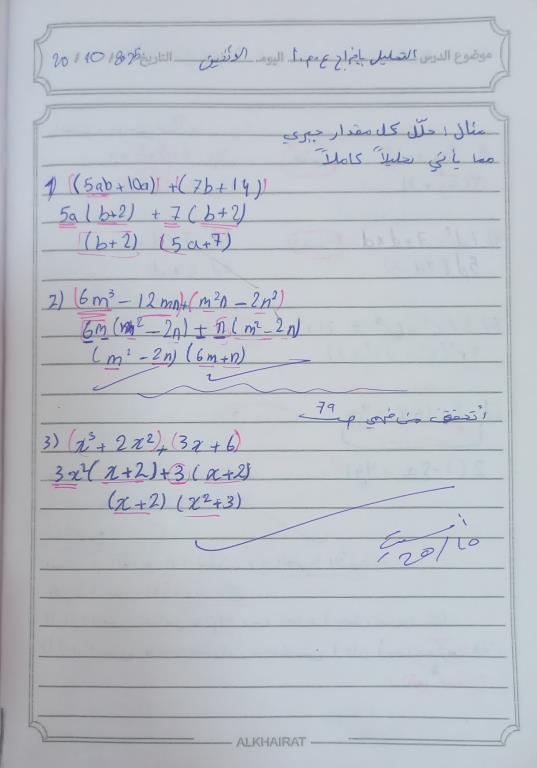 موضوع الدرس التحليل بإخراج ع.م.أ اليوم الاثنين التاريخ 20 / 10 / 2025
مثال: حلّل كل مقدار جبري
مما يأتي تحليلاً كاملاً
1) (5ab + 10a) + (7b + 14)
5a (b+2) + 7 (b+2)
(b+2) (5a+7)
2) (6m³ - 12mn) + (m²n - 2n²)
6m (m² - 2n) + n (m² - 2n)
(m² - 2n) (6m+n)
أتحقق من فهمي ص 79
3) (x³ + 2x²) + (3x + 6)
3x² (x+2) + 3 (x+2)
(x+2) (x²+3)
20/10
ALKHAIRAT